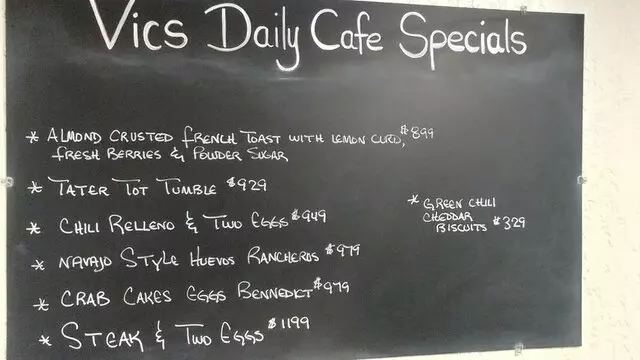 Vics Daily Cafe Specials
* ALMOND CRUSTED FRENCH TOAST WITH LEMON CURD, $899
FRESH BERRIES & POWDER SUGAR
* TATER TOT TUMBLE $929
* CHILI RELLENO & TWO EGGS $949
* NAVAJO STYLE HUEVOS RANCHEROS $979
* CRAB CAKES EGGS BENNEDICT $979
* STEAK & TWO EGGS $1199
* GREEN CHILI
CHEDDAR
BISCUITS $329